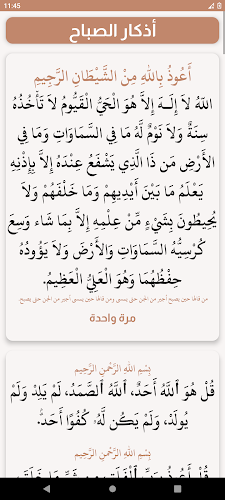 11:45
أذكار الصباح
أَعُوذُ بِاللهِ مِنْ الشَّيْطَانِ الرَّجِيمِ
اللهُ لاَ إِلَهَ إِلاَّ هُوَ الْحَيُّ الْقَيُّومُ لاَ تَأْخُذُهُ
سِنَةٌ وَلاَ نَوْمٌ لَّهُ مَا فِي السَّمَاوَاتِ وَمَا فِي
الأَرْضِ مَن ذَا الَّذِي يَشْفَعُ عِنْدَهُ إِلاَّ بِإِذْنِهِ
يَعْلَمُ مَا بَيْنَ أَيْدِيهِمْ وَمَا خَلْفَهُمْ وَلاَ
يُحِيطُونَ بِشَيْءٍ مِّنْ عِلْمِهِ إِلاَّ بِمَا شَاء وَسِعَ
كُرْسِيُّهُ السَّمَاوَاتِ وَالأَرْضَ وَلاَ يَؤُودُهُ
حِفْظُهُمَا وَهُوَ الْعَلِيُّ الْعَظِيمُ.
من قالها حين يصبح أجير من الجن حتى يمسى ومن قالها حين يمسى أجير من الجن حتى يصبح
مرة واحدة
بِسْمِ اللهِ الرَّحْمنِ الرَّحِيم
قُلْ هُوَ ٱللَّهُ أَحَدٌ، ٱللَّهُ ٱلصَّمَدُ، لَمْ يَلِدْ وَلَمْ
يُولَدْ، وَلَمْ يَكُن لَّهُۥ كُفُوًا أَحَدٌۢ.
بِسْمِ اللهِ الرَّحْمنِ الرَّحِيم
قُلْ أَعُوذُ بِرَبِّ ٱلْفَلَقِ، مِن شَرِّ مَا خَلَقَ،